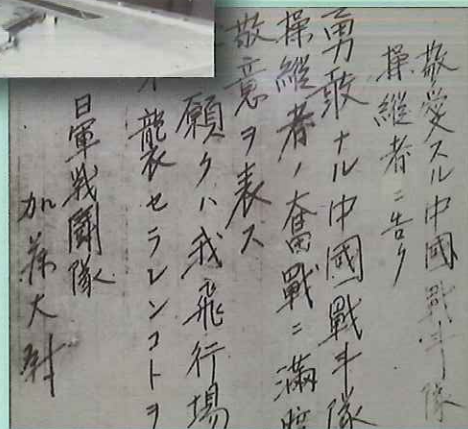 敬愛スル中國戦斗隊
操縦者ニ告ク
勇敢ナル中國戦斗隊
操縦者ノ奮戦ニ満
敬意ヲ表ス
願クハ我飛行場
襲セラレンコトヲ
日軍戦闘隊
加藤大尉